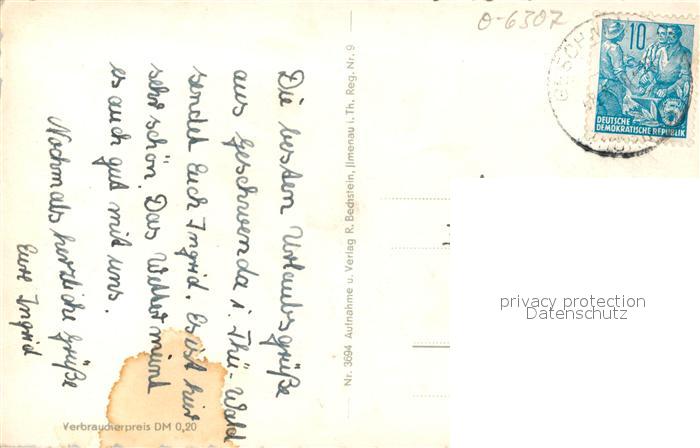 Die besten Urlaubsgrüße
aus Geschwenda i. Thü-Wald
sendet Euch Ingrid. Es ist hier
sehr schön. Das Wetter meint
es auch gut mit uns.
Nochmals herzliche Grüße
Eure Ingrid
Verbraucherpreis DM 0,20
Nr. 3694 Aufnahme u. Verlag R. Bechstein, Ilmenau i. Th. Reg. Nr. 9
O-6307
10
DEUTSCHE
DEMOKRATISCHE REPUBLIK
privacy protection
Datenschutz